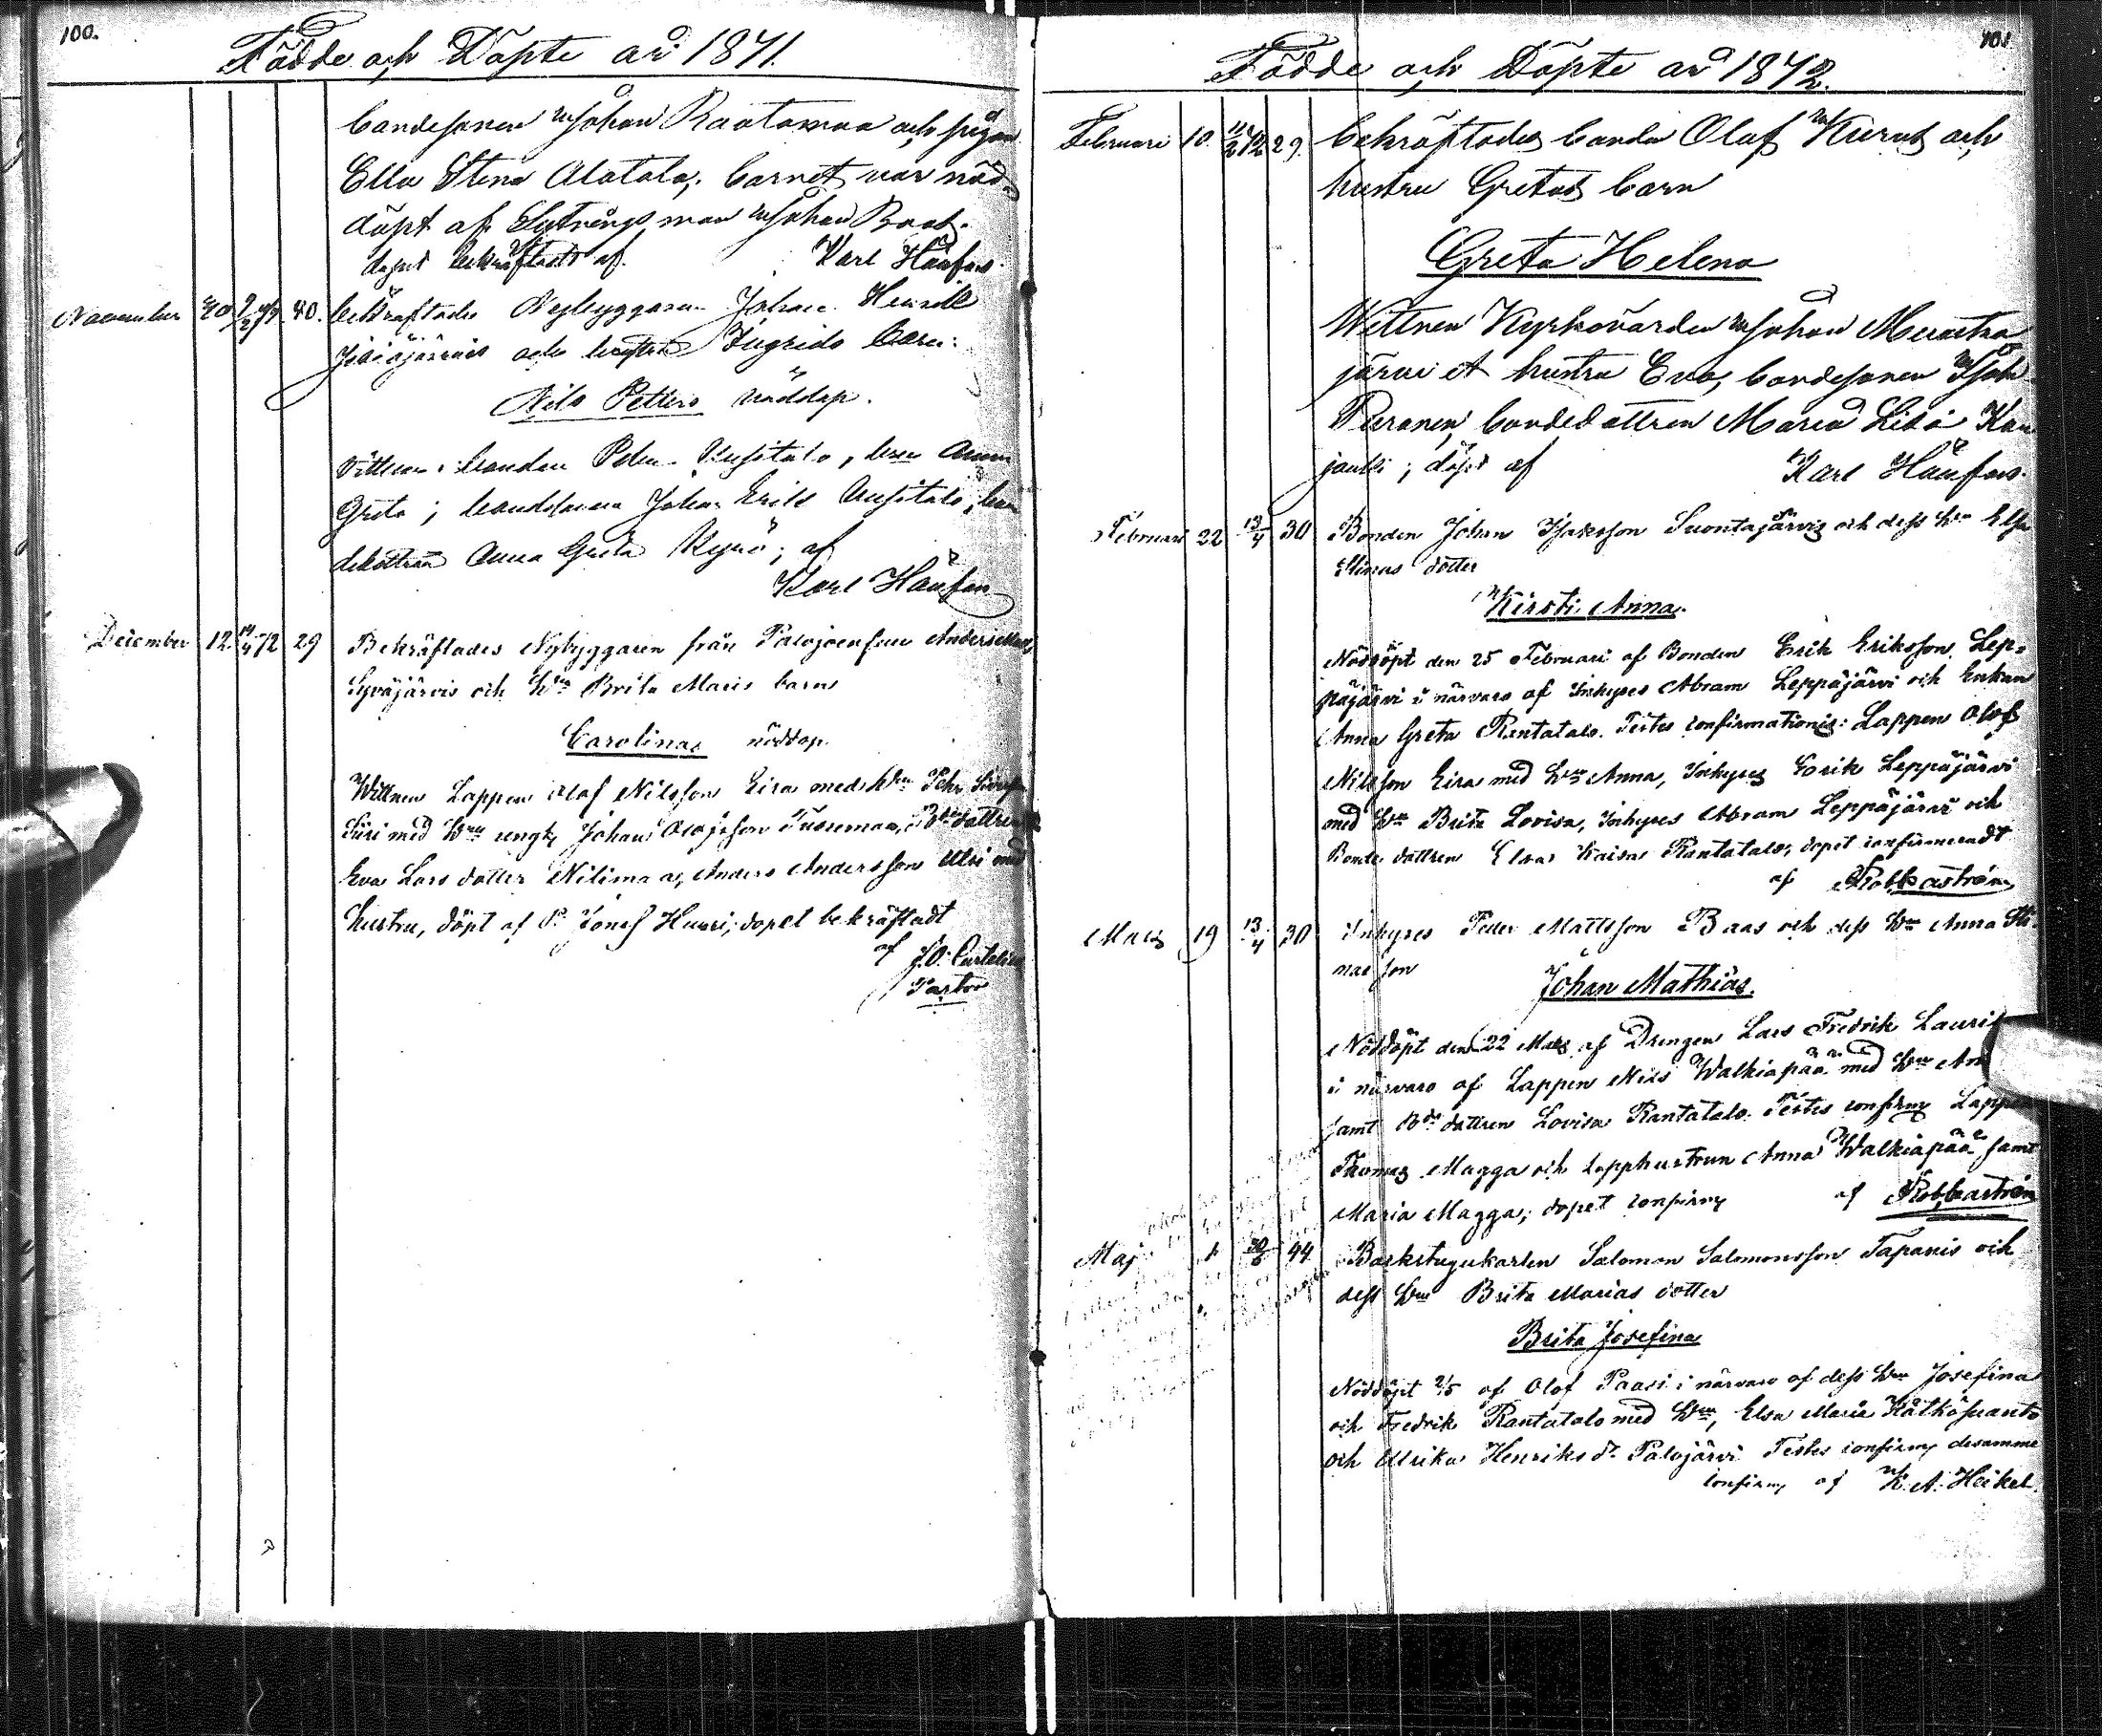 100.
Födde och Döpte år 1871.
bondesonen Johan Raatamaa och pigan
Ella Stina Alatalo; barnet var nöd-
döpt af Slutningsman Johan Raat.
dopet bekräftadt af Karl Hänfors.
November 20 40. bekräftades Nybyggaren Johan Henrik
Jääjärvis och hustru Ingrids barn:
Nils Petter nöddop.
Vittnen: bonden Peter Uusitalo, hun Anna
Greta; bondsonen Johan Erik Uusitalo, bon
dedottran Anna Greta Kyrö; af
Karl Hänfors
December 12. 14/4 72 29 Bekräftades Nybyggaren från Palojoensuu Anders
Syväjärvis och Hru Brita Maries barn
Carolina nöddop.
Wittnen Lappen Olof Nilsson Eira med hru Pehr
Siiri med Hru ungk. Johan Olofsson dottren
Eva Lars dotter Niitimaa, Anders Andersson med
hustru, döpt af P. Jonas Huuri; dopet bekräftadt
af J. O.
Pastor
101
Födde och Döpte år 1872.
Februari 10. 11/2 72 29. bekräftades bonden Olof Kurus och
hustru Gretas barn
Greta Helena
Wittnen Kyrkovärden Johan Muotka
järvi et hustru Eva, bondesonen Isak
Puranen, bondedottren Maria Lisa Kau
; döpt af Karl Hänfors.
Februari 22 13/4 30 Bonden Johan Isaksson Suontajärvis och dess Hru Elsa
Stinas dotter
Kirsti Anna.
Nöddöpt den 25 Februari af Bonden Erik Eriksson Lep-
päjärvi i närvaro af Inhyses Abram Leppäjärvi och Enkan
Anna Greta Rantatalo. Testes confirmationis: Lappen Olof
Nilsson Eira med Hru Anna, Inhyses Erik Leppäjärvi
med Hru Brita Lovisa, Inhyses Abram Leppäjärvi och
Bonde dottren Elsa Kaisa Rantatalo; dopet confirmeradt
af
Mars 19 13/4 30 Inhyses Peter Mattsson Baas och dess Hru Anna Sti-
nas son
Johan Mathias.
Nöddöpt den 22 Mars af Drengen Lars Fredrik Lauri
i närvaro af Lappen Nils Walkiapää med Hru An
samt Bde dottren Lovisa Rantatalo. Testes confirm Lappen
Thomas Magga och lapphustrun Anna Walkiapää samt
Maria Magga; dopet confirm af
Maj 1 30/6 44 Backstugukarlen Salomon Salomonsson Tapanis och
dess Hru Brita Marias dotter
Brita Josefina
Nöddöpt 2/5 af Olof Paasi i närvaro af dess Hru Josefina
och Fredrik Rantatalo med Hru, Elsa Maria Kätkäsuanto
och Ulrika Henriks dr. Palojärvi Testes confirm desamme
confirm af K. A. Heikel.